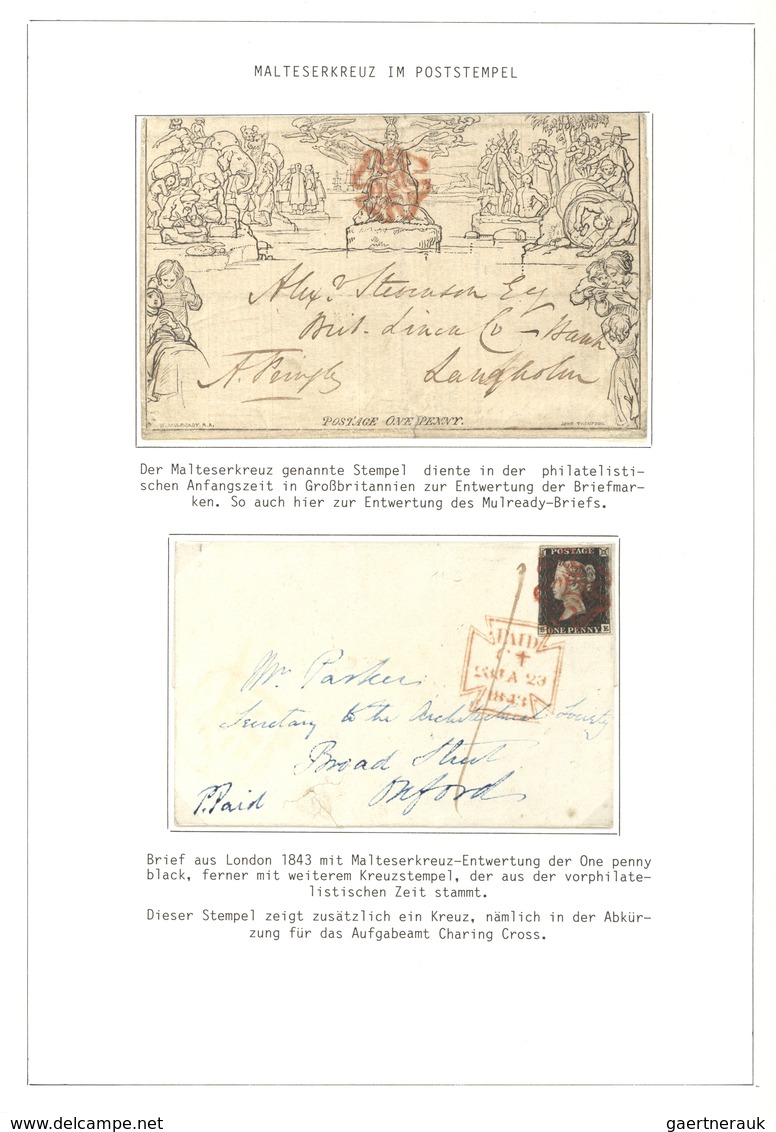 MALTESERKREUZ IM POSTSTEMPEL
Alexr Stevenson Esq
Brit. Linen Co - Bank
Langholm
POSTAGE ONE PENNY.
W. MULREADY, R.A.
JOHN THOMPSON.
Der Malteserkreuz genannte Stempel diente in der philatelisti-
schen Anfangszeit in Großbritannien zur Entwertung der Briefmar-
ken. So auch hier zur Entwertung des Mulready-Briefs.
POSTAGE
ONE PENNY
PAID
C +
JA 23
1843
Mr. Parker
Secretary to the Architectural Society
Broad Street
Oxford
P.Paid
Brief aus London 1843 mit Malteserkreuz-Entwertung der One penny
black, ferner mit weiterem Kreuzstempel, der aus der vorphilate-
listischen Zeit stammt.
Dieser Stempel zeigt zusätzlich ein Kreuz, nämlich in der Abkür-
zung für das Aufgabeamt Charing Cross.
www.delcampe.net
gaertnerauk